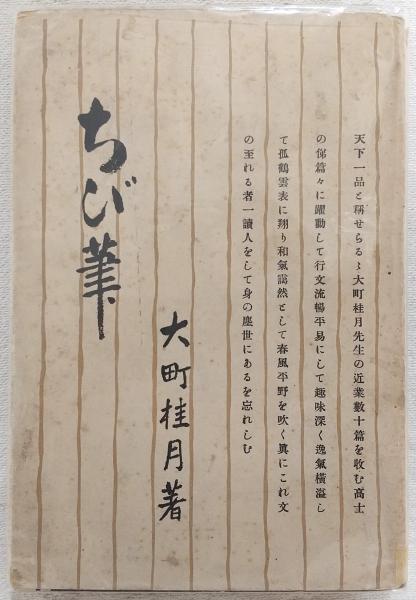 天下一品と稱せらるゝ大町桂月先生の近業數十篇を收む高士
の俤篇々に躍動して行文流暢平易にして趣味深く逸氣橫溢し
て孤鶴雲表に翔り和氣靄然として春風平野を吹く眞にこれ文
の至れる者一讀人をして身の塵世にあるを忘れしむ
ちび筆
大町桂月著